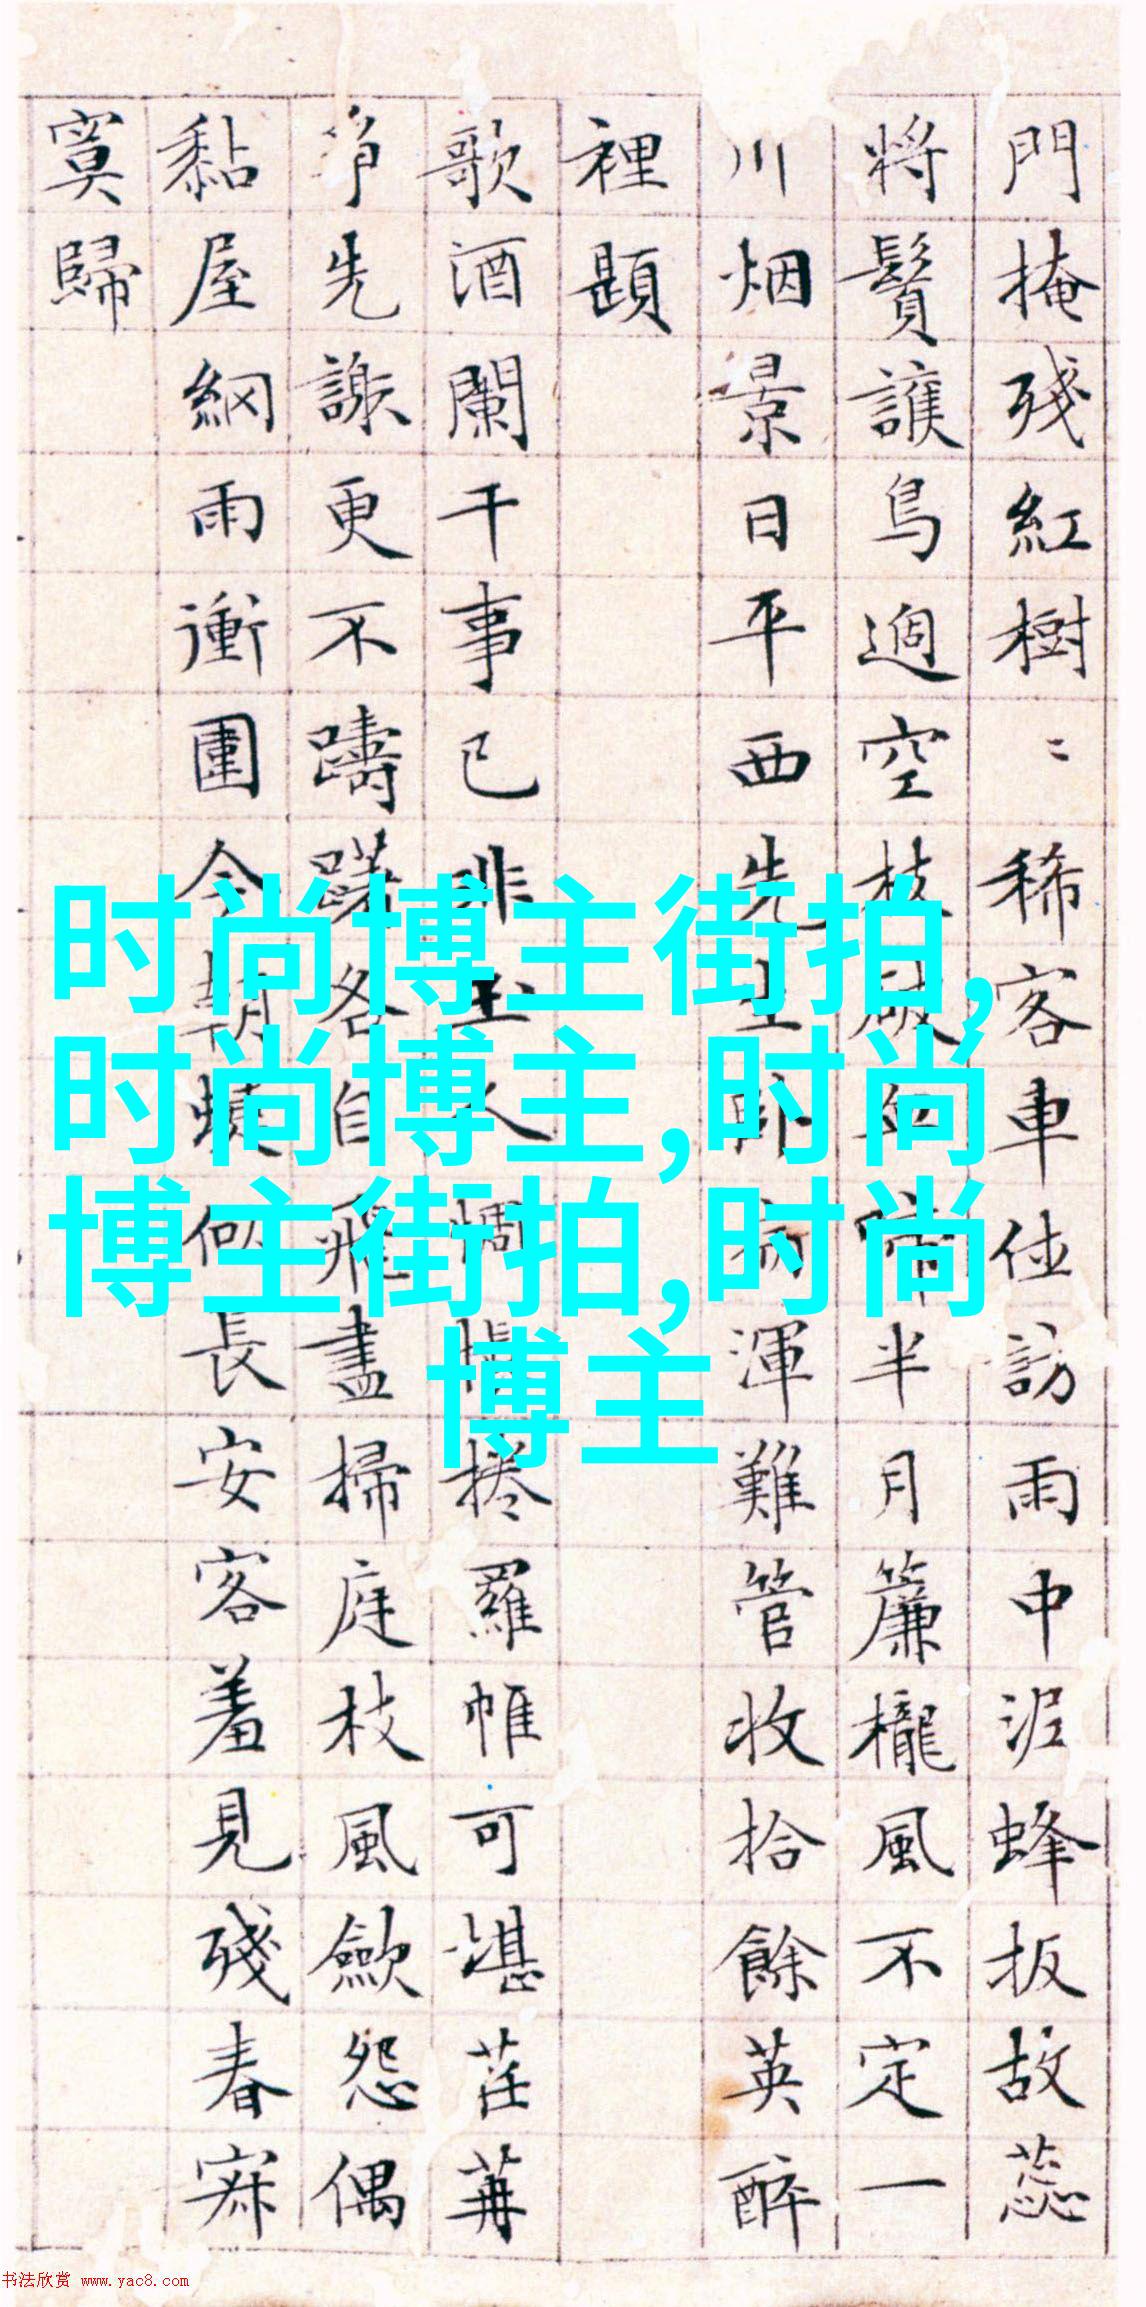 門掩殘紅樹〻稀客車位訪雨中泥蜂扳故蕊
將鬢護鳥過空枝破半月簾櫳風不定一
川烟景日平西先生卧病渾難管收拾餘英醉
裡題
歌酒闌干事已非主人惆悵捲羅帷可堪荏苒
爭先謝更不躊躇各自飛盡掃庭枝風歛怨偶
黏屋網雨衝圍今朝蝶似長安客羞見殘春寂
寞歸
时尚博主街拍,
时尚博主,时尚
博主街拍,时尚
博主
书法欣赏 www.yac8.com